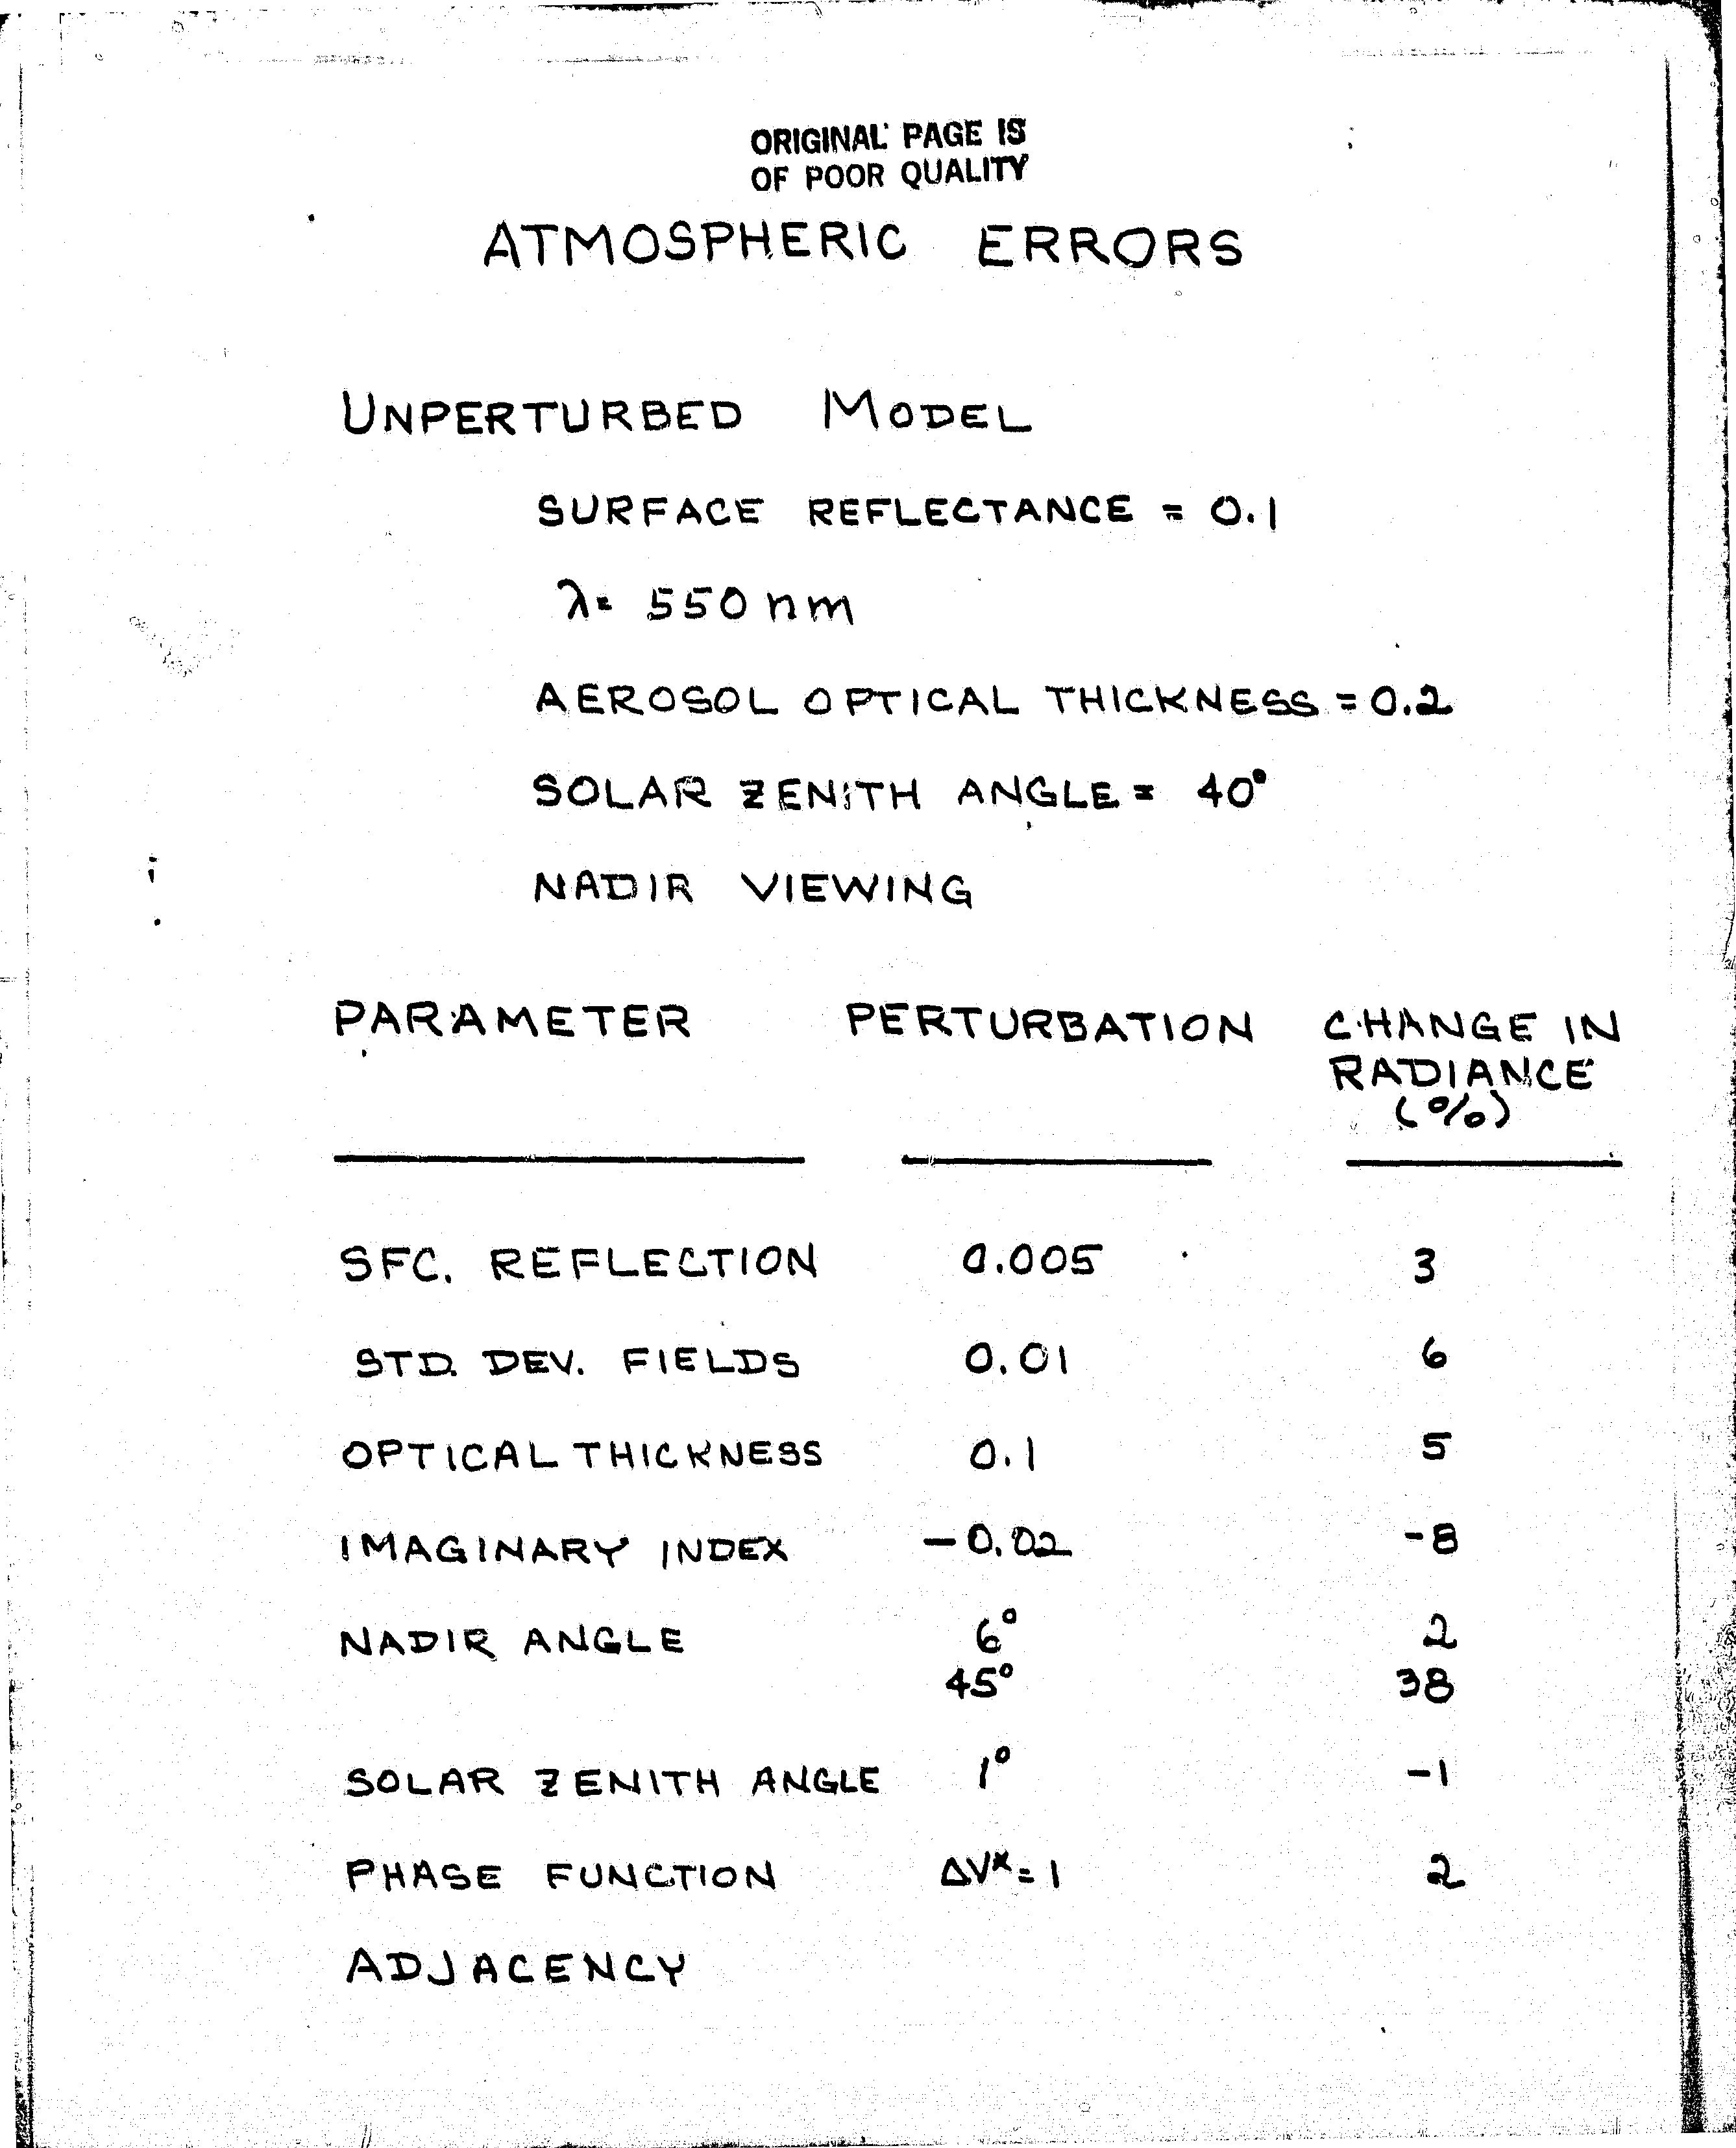 ORIGINAL PAGE IS
OF POOR QUALITY
ATMOSPHERIC ERRORS
UNPERTURBED MODEL
SURFACE REFLECTANCE = 0.1
λ = 550 nm
AEROSOL OPTICAL THICKNESS = 0.2
SOLAR ZENITH ANGLE = 40°
NADIR VIEWING
PARAMETER PERTURBATION CHANGE IN
RADIANCE
(%)
SFC. REFLECTION 0.005 3
STD. DEV. FIELDS 0.01 6
OPTICAL THICKNESS 0.1 5
IMAGINARY INDEX -0.02 -8
NADIR ANGLE 6° 2
45° 38
SOLAR ZENITH ANGLE 1° -1
PHASE FUNCTION ΔV* = 1 2
ADJACENCY